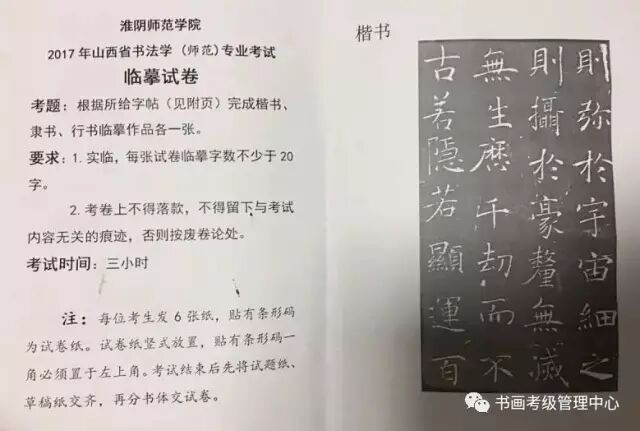 淮阴师范学院
2017年山西省书法学(师范)专业考试
临摹试卷
考题：根据所给字帖(见附页)完成楷书、
隶书、行书临摹作品各一张。
要求：1. 实临，每张试卷临摹字数不少于20
字。
2. 考卷上不得落款，不得留下与考试
内容无关的痕迹，否则按废卷论处。
考试时间：三小时
注：每位考生发6张纸，贴有条形码
为试卷纸。试卷纸竖式放置，贴有条形码一
角必须置于左上角。考试结束后先将试题纸、
草稿纸交齐，再分书体交试卷。
楷书
則弥於宇宙細之
則攝於豪釐無滅
無生歷千劫而不
古若隱若顯運百
书画考级管理中心